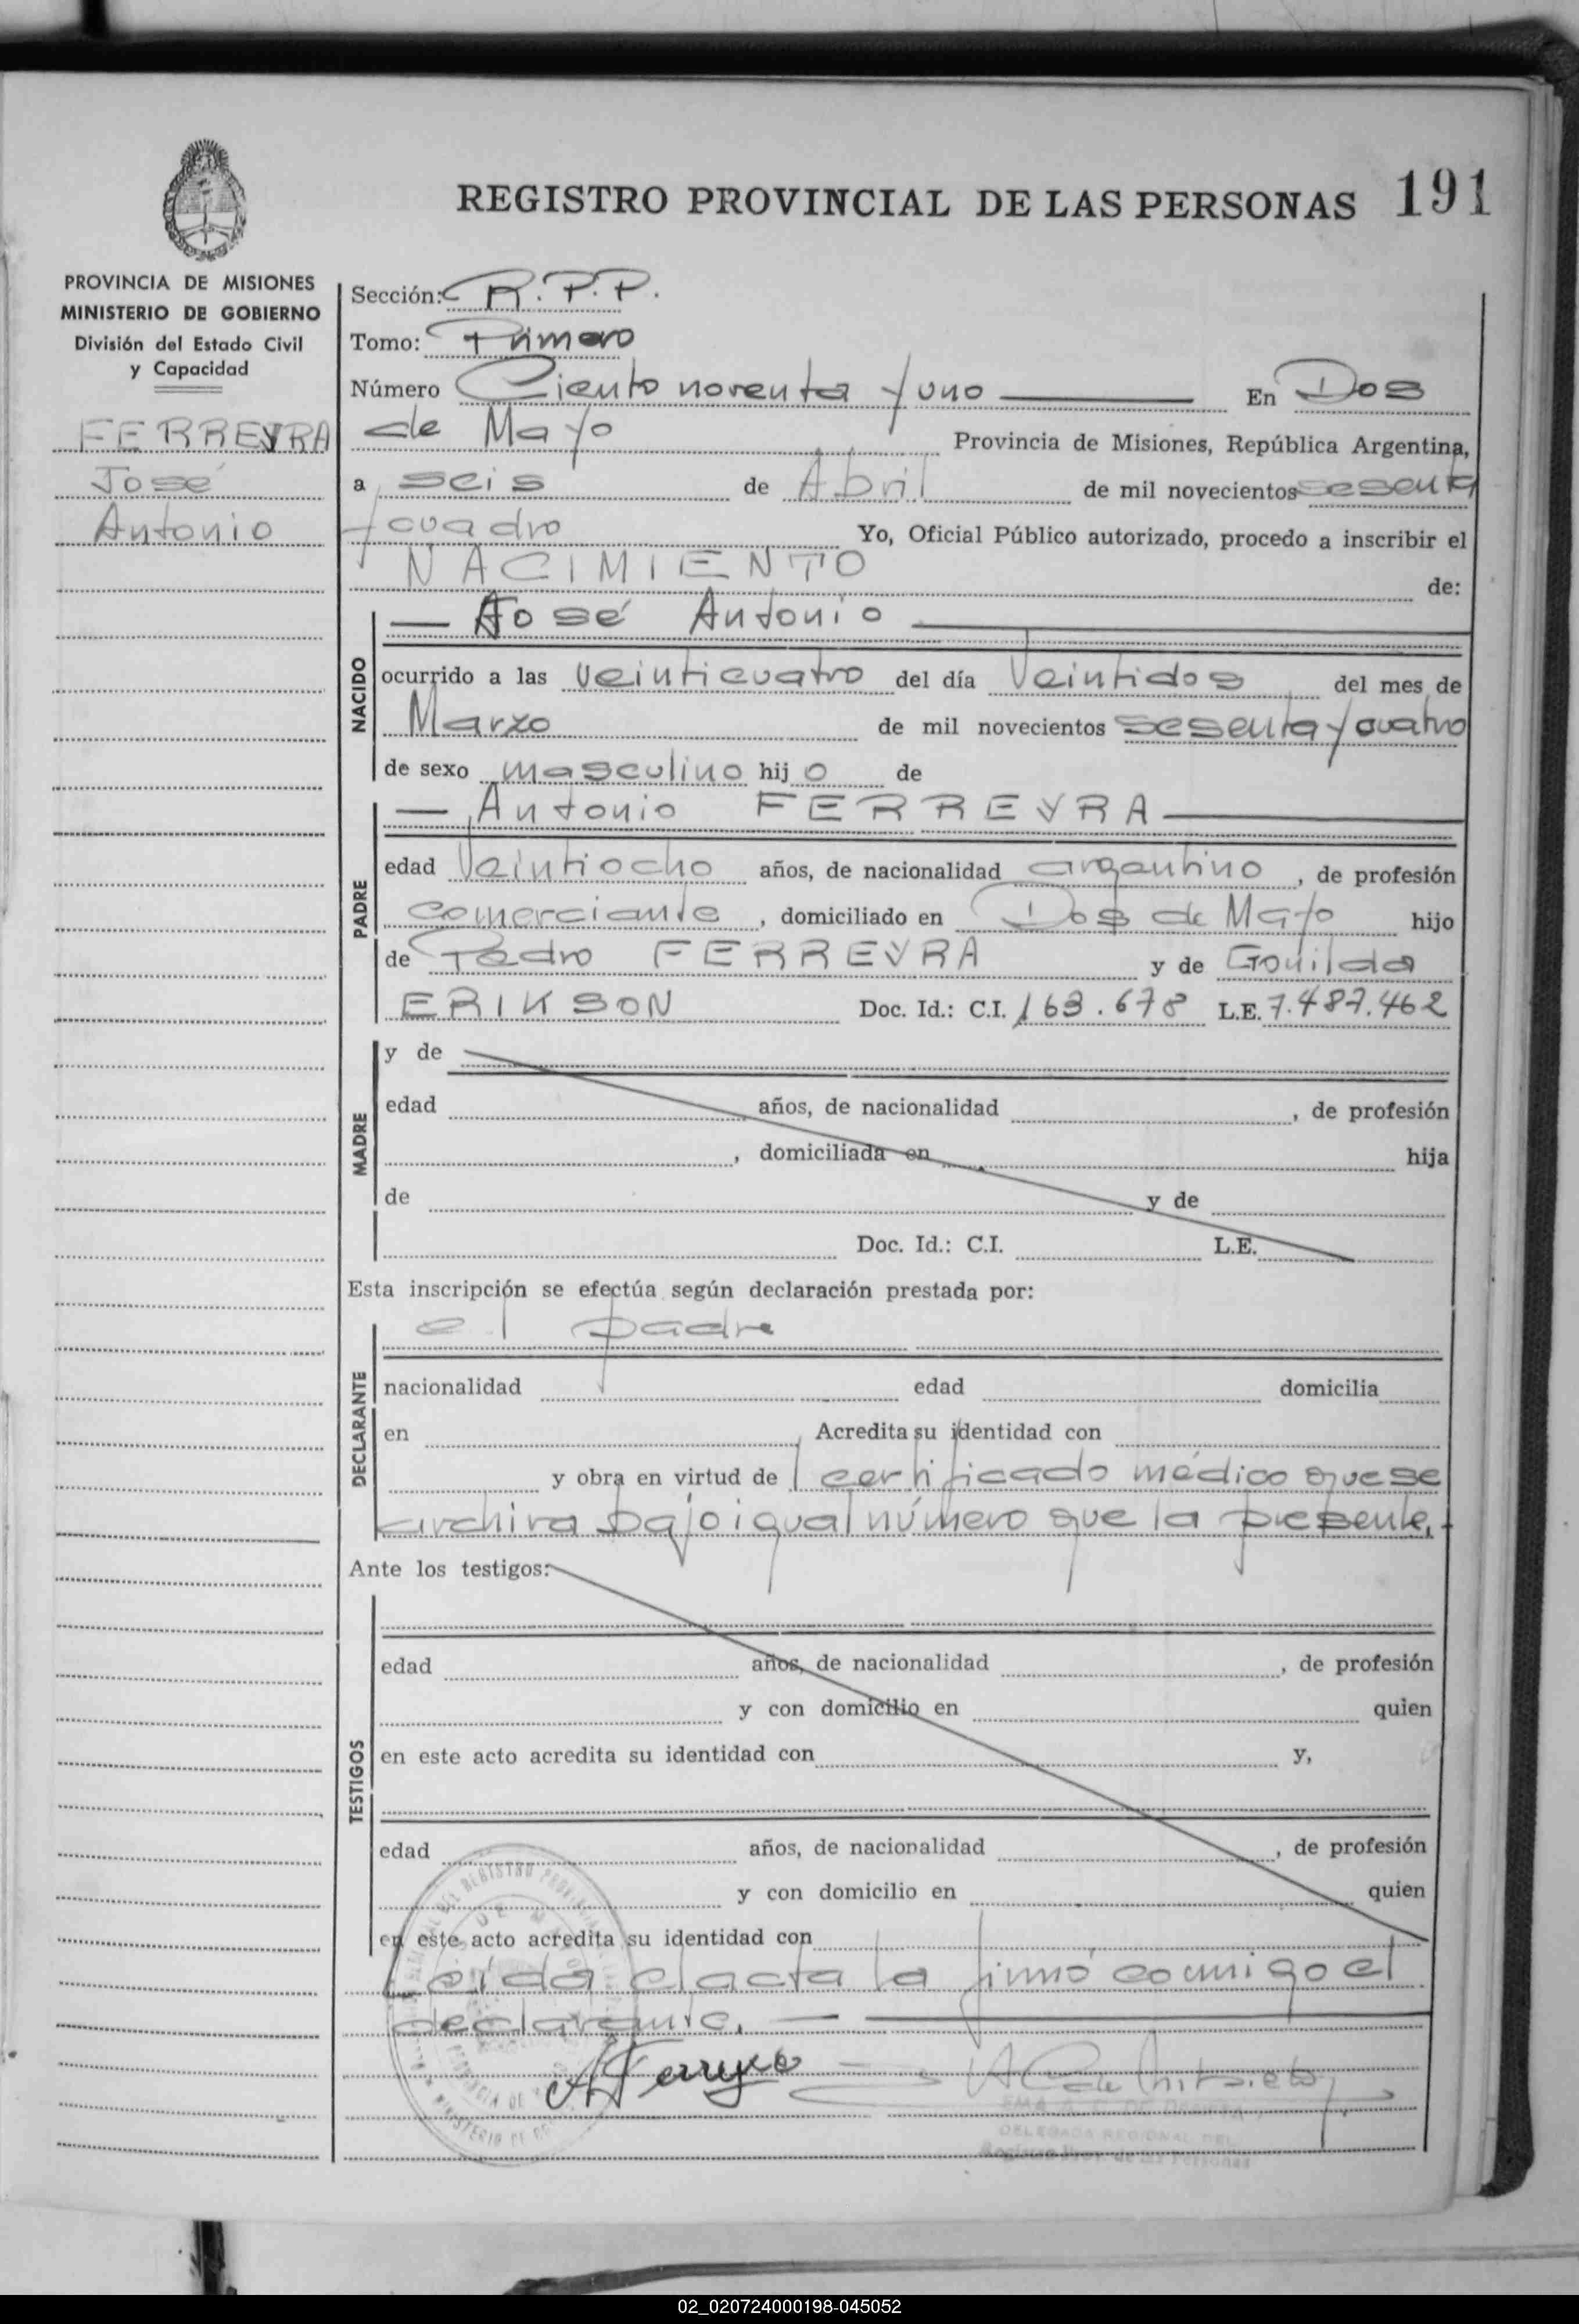 REGISTRO PROVINCIAL DE LAS PERSONAS 191
PROVINCIA DE MISIONES
MINISTERIO DE GOBIERNO
División del Estado Civil
y Capacidad
FERREYRA
José
Antonio
Sección: R.P.P.
Tomo: Primero
Número Ciento noventa y uno En Dos
de Mayo Provincia de Misiones, República Argentina,
a seis de Abril de mil novecientos sesenta
y cuadro Yo, Oficial Público autorizado, procedo a inscribir el
NACIMIENTO de:
José Antonio
NACIDO
ocurrido a las veinticuatro del día Veintidos del mes de
Marzo de mil novecientos sesenta y cuatro
de sexo masculino hijo de
Antonio FERREYRA
PADRE
edad Veintiocho años, de nacionalidad argentino, de profesión
comerciante, domiciliado en Dos de Mayo hijo
de Pedro FERREYRA y de
ERIKSON Doc. Id.: C.I. 163.678 L.E. 7.487.462
MADRE
y de
edad años, de nacionalidad , de profesión
, domiciliada en hija
de y de
Doc. Id.: C.I. L.E.
Esta inscripción se efectúa según declaración prestada por:
el padre
DECLARANTE
nacionalidad edad domicilia
en Acredita su identidad con
y obra en virtud de certificado médico que se
archiva bajo igual número que la presente.
Ante los testigos:
TESTIGOS
edad años, de nacionalidad , de profesión
y con domicilio en quien
en este acto acredita su identidad con y,
edad años, de nacionalidad , de profesión
y con domicilio en quien
en este acto acredita su identidad con
Leída el acta la firmó conmigo el
declarante.
DELEGADA REGIONAL DEL
02_020724000198-045052